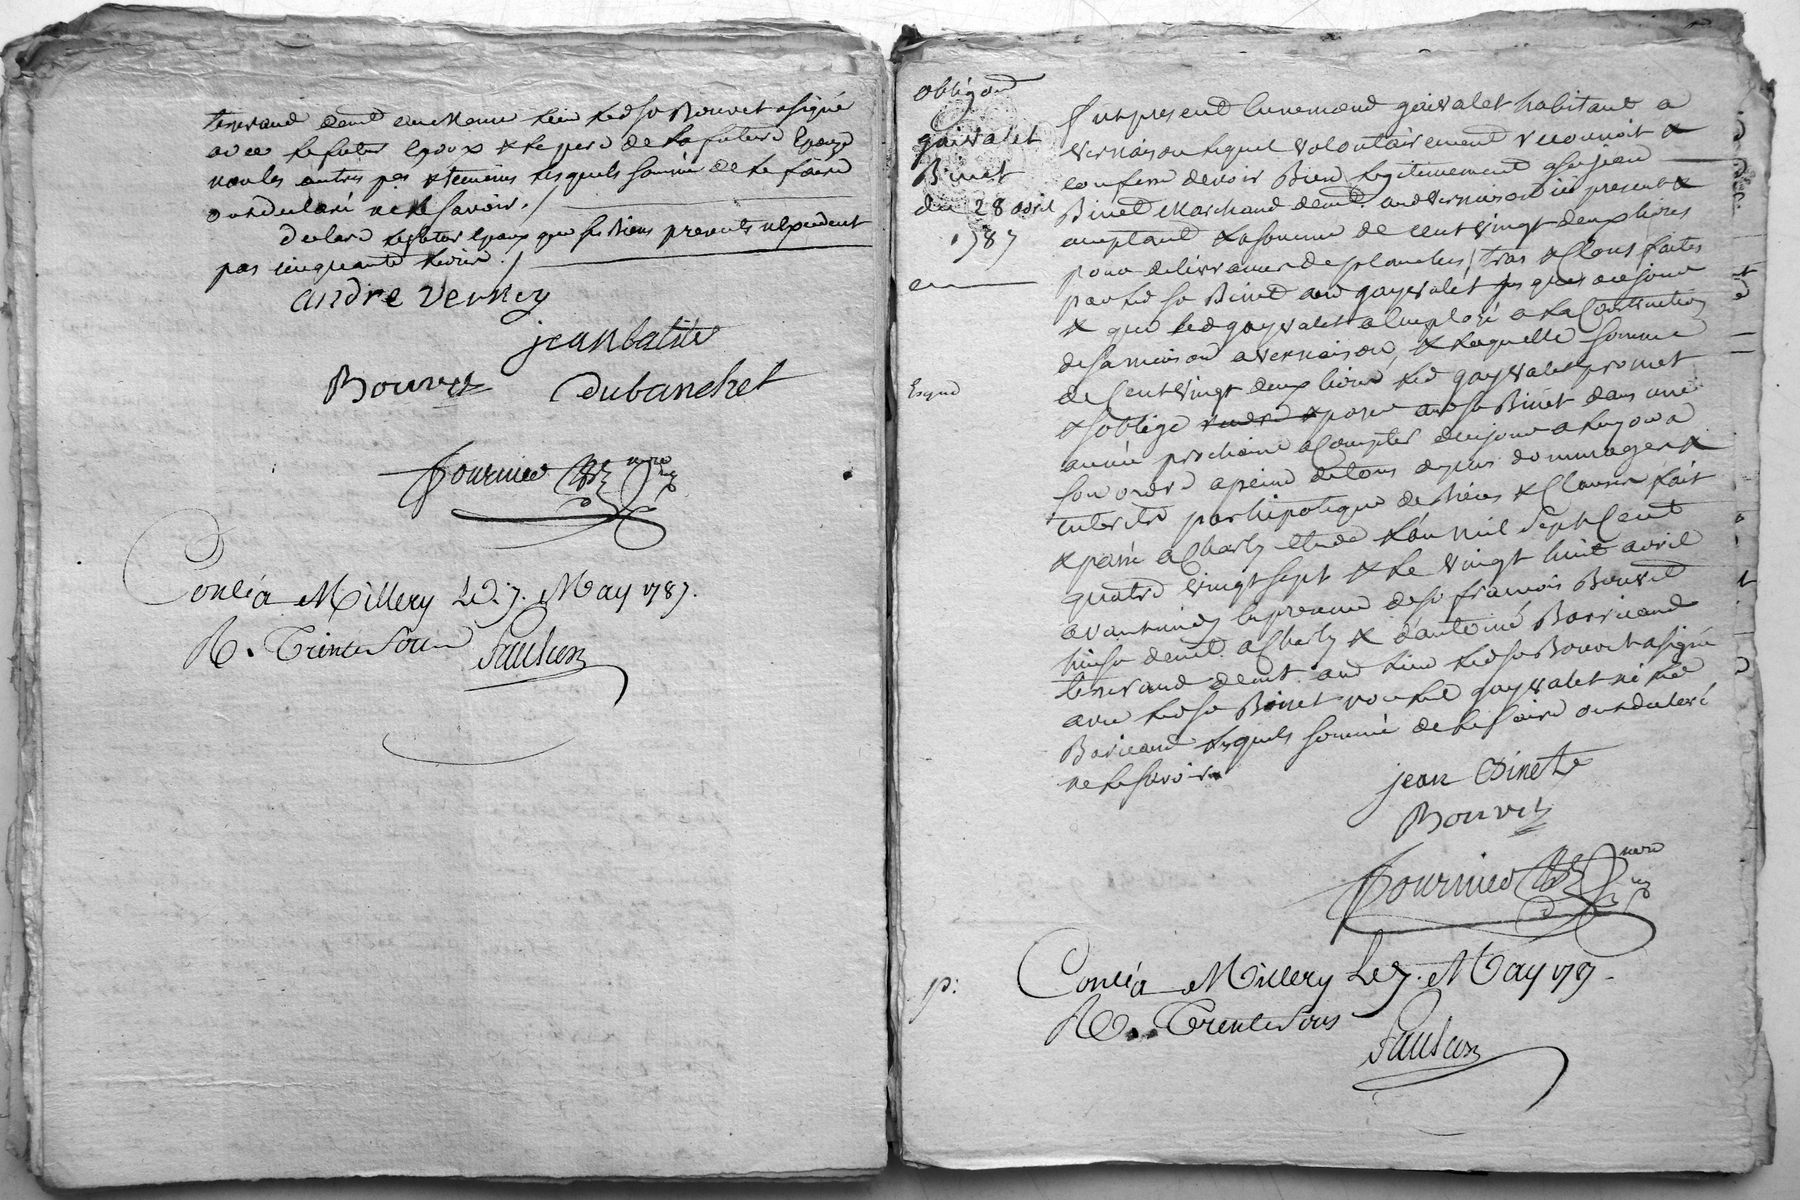 demt au meme lieu led sr Bouvet a signé
avec le futur epoux & le pere de la future Epouze
non les autres ptes & temoins lesquels sommé de le faire
ont declaré ne le savoir ./
declare le futur epoux que ses Biens presents n'excedent
pas cinquante livres ./
andré verney
jean batite
Bouvet dubanchet
Fournier nore
Conlé a Millery Le 7. May 1787.
R. Trente Sous Saulson
obligaõn
gaivalet
Binet
du 28 avril
1787
Exped
p:
fut present gaivalet habitant a
vernaison lequel volontairement reconnoit &
confesse devoir Bien legitimement a sr jean
Binet Marchand demt aud vernaison ici present &
acceptant la somme de cent vingt deux livres
pour delivrance de planches, tras & Clous faites
par led sr Binet aud gayvalet jusques a ce jour
& que led gayvalet a employé a la Construction
de sa maison a vernaison, & laquelle somme
de Cent vingt deux livres led gayvalet promet
& s'oblige payer aud sr Binet dans une
année prochaine a Compter de ce jour a luy ou a
son ordre a peine de tous depens dommages &
interets par hipoteque de Biens & Clauses fait
& passé a Charly etude l'an mil Sept Cent
quatre vingt sept & le vingt huit avril
avant midy en presence de sr francois Bouvet
demt a Charly & d'antoine Barricand
demt aud lieu led sr Bouvet a signé
avec led sr Binet non led gayvalet ni led
Baricand lesquels sommé de le faire ont declaré
ne le savoir
jean Binet
Bouvet
Fournier nore
Conlé a Millery Le 7. May 1787.
R. Trente Sous
Saulson